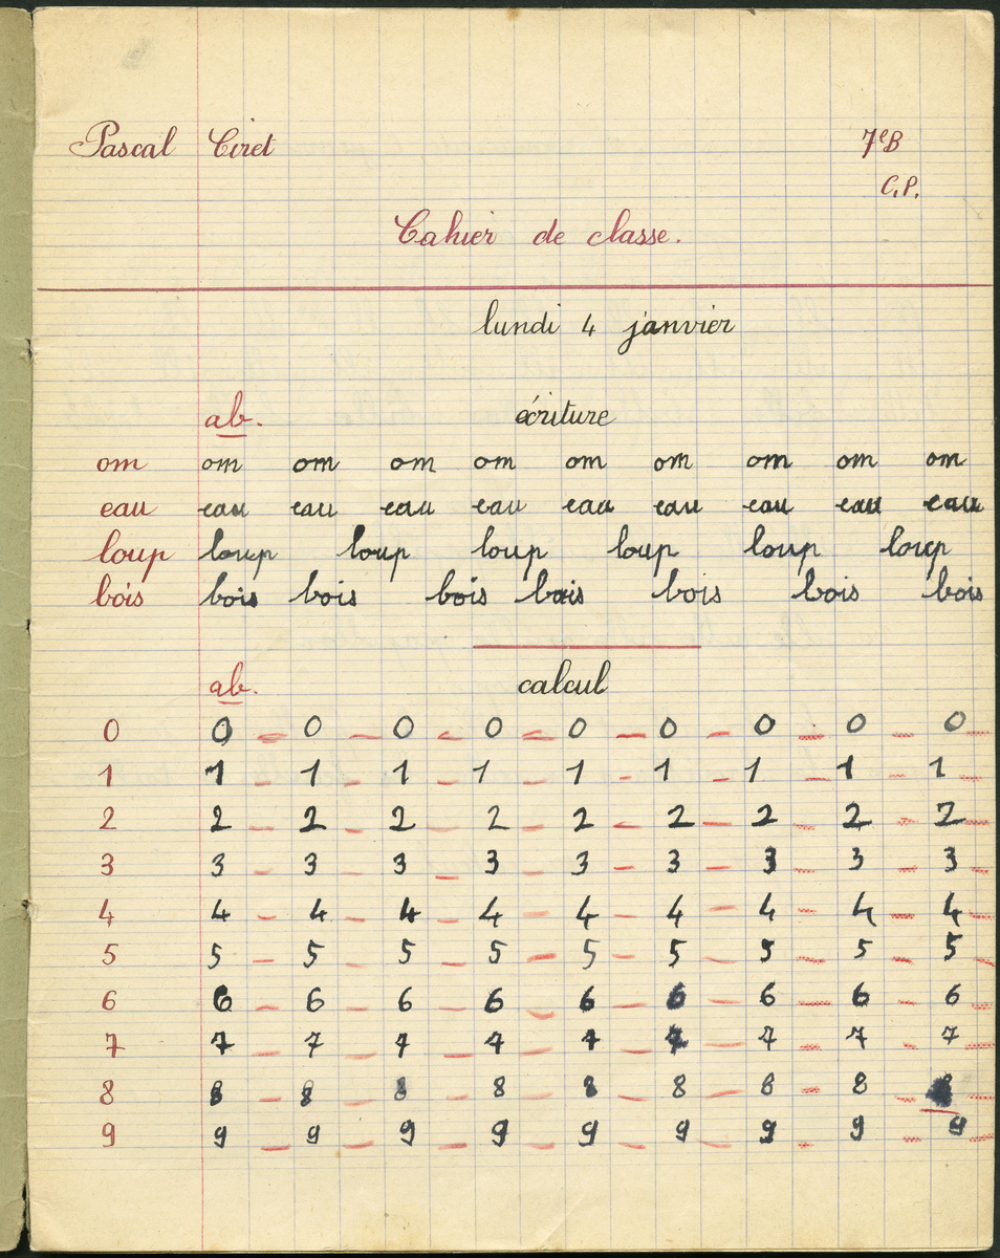 Pascal Ciret 7e B
C.P.
Cahier de classe.
lundi 4 janvier
ab. écriture
om om om om om om om om om om
eau eau eau eau eau eau eau eau eau eau
loup loup loup loup loup loup loup
bois bois bois bois bois bois bois bois
ab. calcul
0 0 - 0 - 0 - 0 - 0 - 0 - 0 - 0 - 0 -
1 1 - 1 - 1 - 1 - 1 - 1 - 1 - 1 - 1 -
2 2 - 2 - 2 - 2 - 2 - 2 - 2 - 2 - 2 -
3 3 - 3 - 3 - 3 - 3 - 3 - 3 - 3 - 3 -
4 4 - 4 - 4 - 4 - 4 - 4 - 4 - 4 - 4 -
5 5 - 5 - 5 - 5 - 5 - 5 - 5 - 5 - 5 -
6 6 - 6 - 6 - 6 - 6 - 6 - 6 - 6 - 6 -
7 7 - 7 - 7 - 7 - 7 - 7 - 7 - 7 - 7 -
8 8 - 8 - 8 - 8 - 8 - 8 - 8 - 8 - 8 -
9 9 - 9 - 9 - 9 - 9 - 9 - 9 - 9 - 9